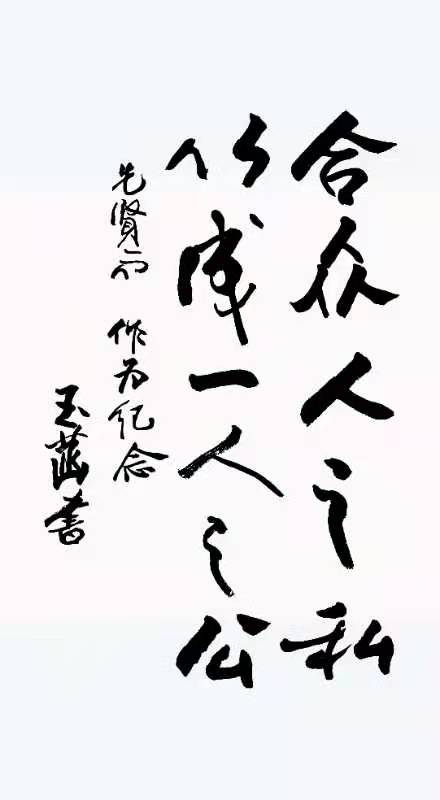 合众人之私
以成一人之公
先贤 作为纪念
玉 书